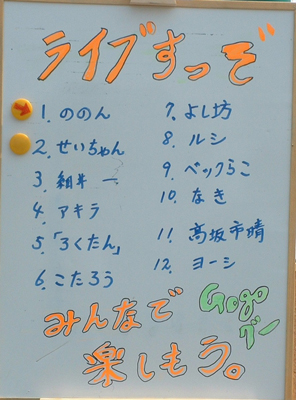 ライブすっぞ
1. ののん
2. せいちゃん
3. 細井 一
4. アキラ
5. 「ろくたん」
6. こたろう
7. よし坊
8. ルシ
9. ベックらこ
10. なき
11. 高坂市晴
12. ヨーシ
みんなで
楽しもう。
Gogo
グー